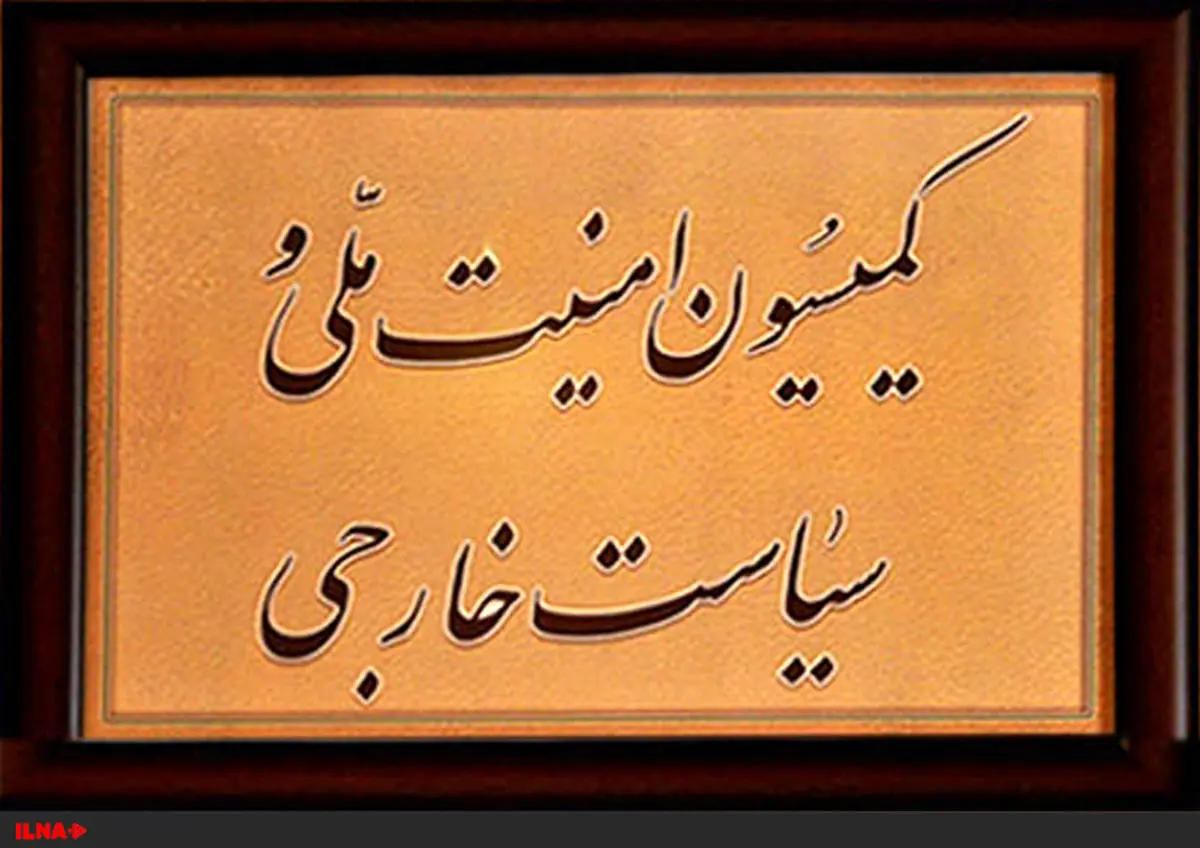 کمیسیون امنیت ملّی و
سیاست خارجی
ILNA